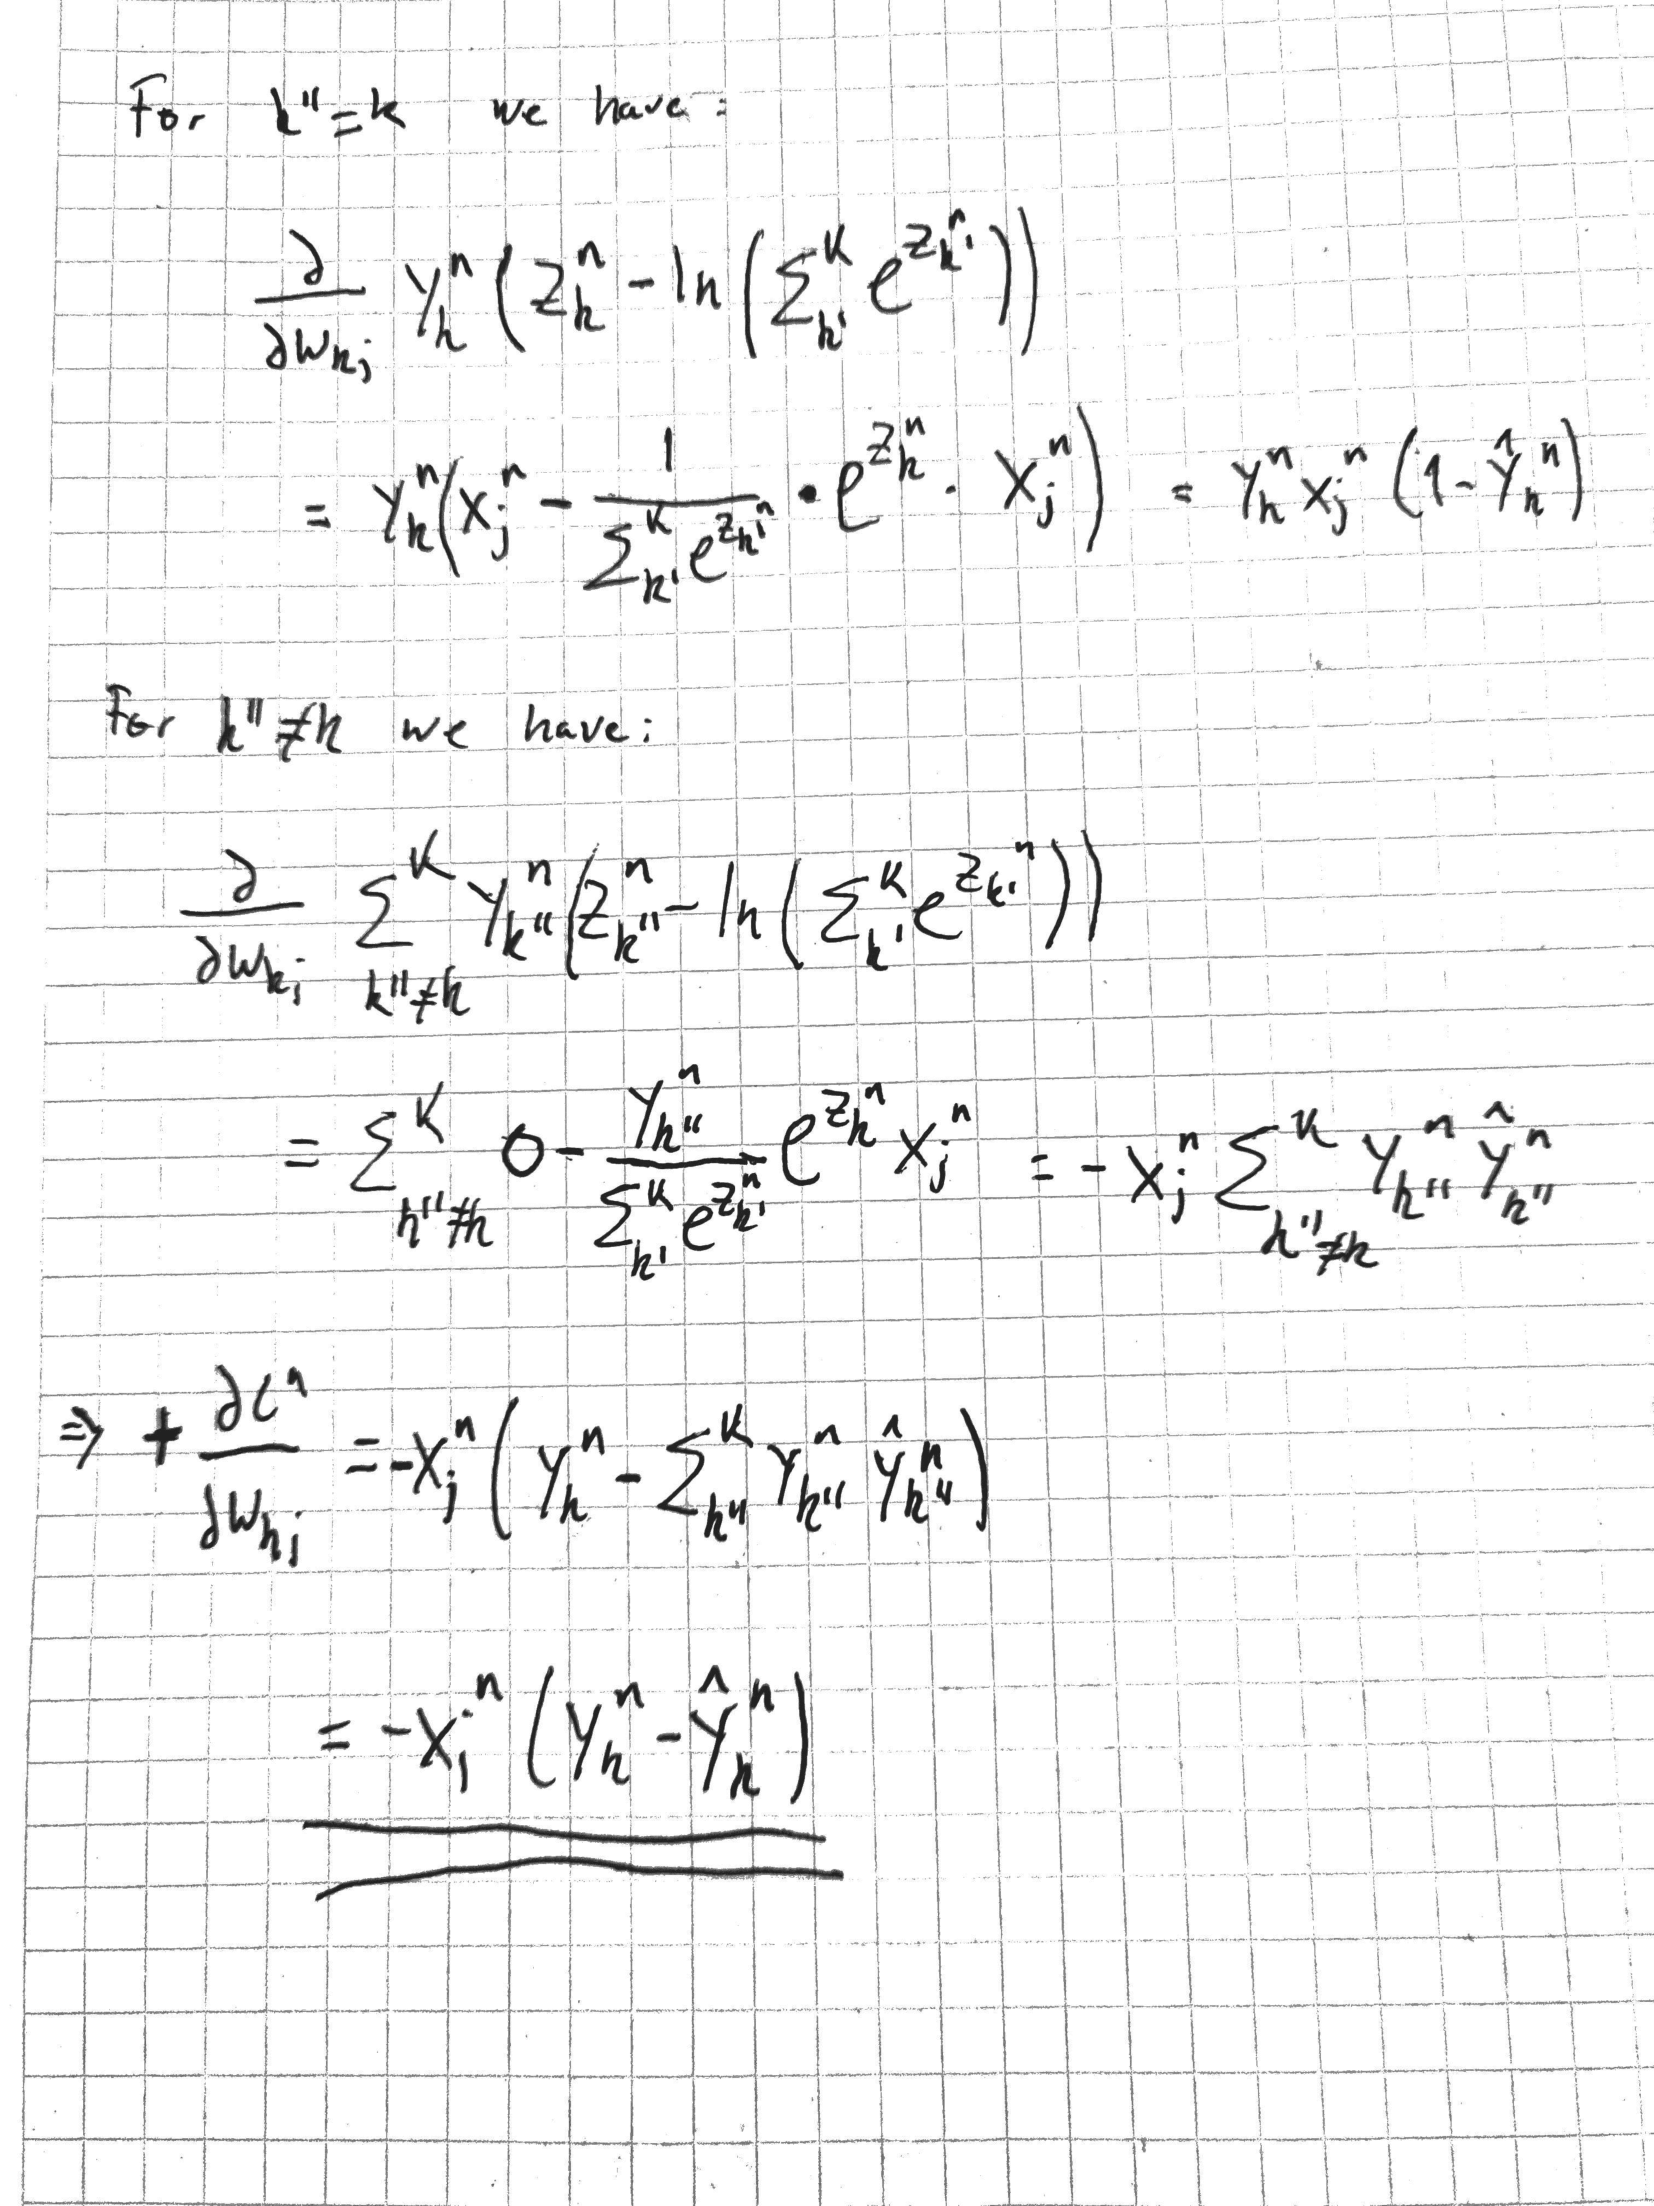 For k'' = k we have:
∂/∂w_{kj} y_k^n ( z_k^n - ln ( Σ_{k'}^K e^{z_{k'}^n} ) )
= y_k^n ( x_j^n - 1/(Σ_{k'}^K e^{z_{k'}^n}) · e^{z_k^n} · x_j^n ) = y_k^n x_j^n ( 1 - ŷ_k^n )
For k'' ≠ k we have:
∂/∂w_{kj} Σ_{k''≠k}^K y_{k''}^n ( z_{k''}^n - ln ( Σ_{k'}^K e^{z_{k'}^n} ) )
= Σ_{k''≠k}^K 0 - y_{k''}^n/(Σ_{k'}^K e^{z_{k'}^n}) e^{z_k^n} x_j^n = - x_j^n Σ_{k''≠k}^K y_{k''}^n ŷ_{k''}^n
⇒ + ∂C^n/∂w_{kj} = - x_j^n ( y_k^n - Σ_{k''}^K y_{k''}^n ŷ_{k''}^n )
= - x_j^n ( y_k^n - ŷ_k^n )